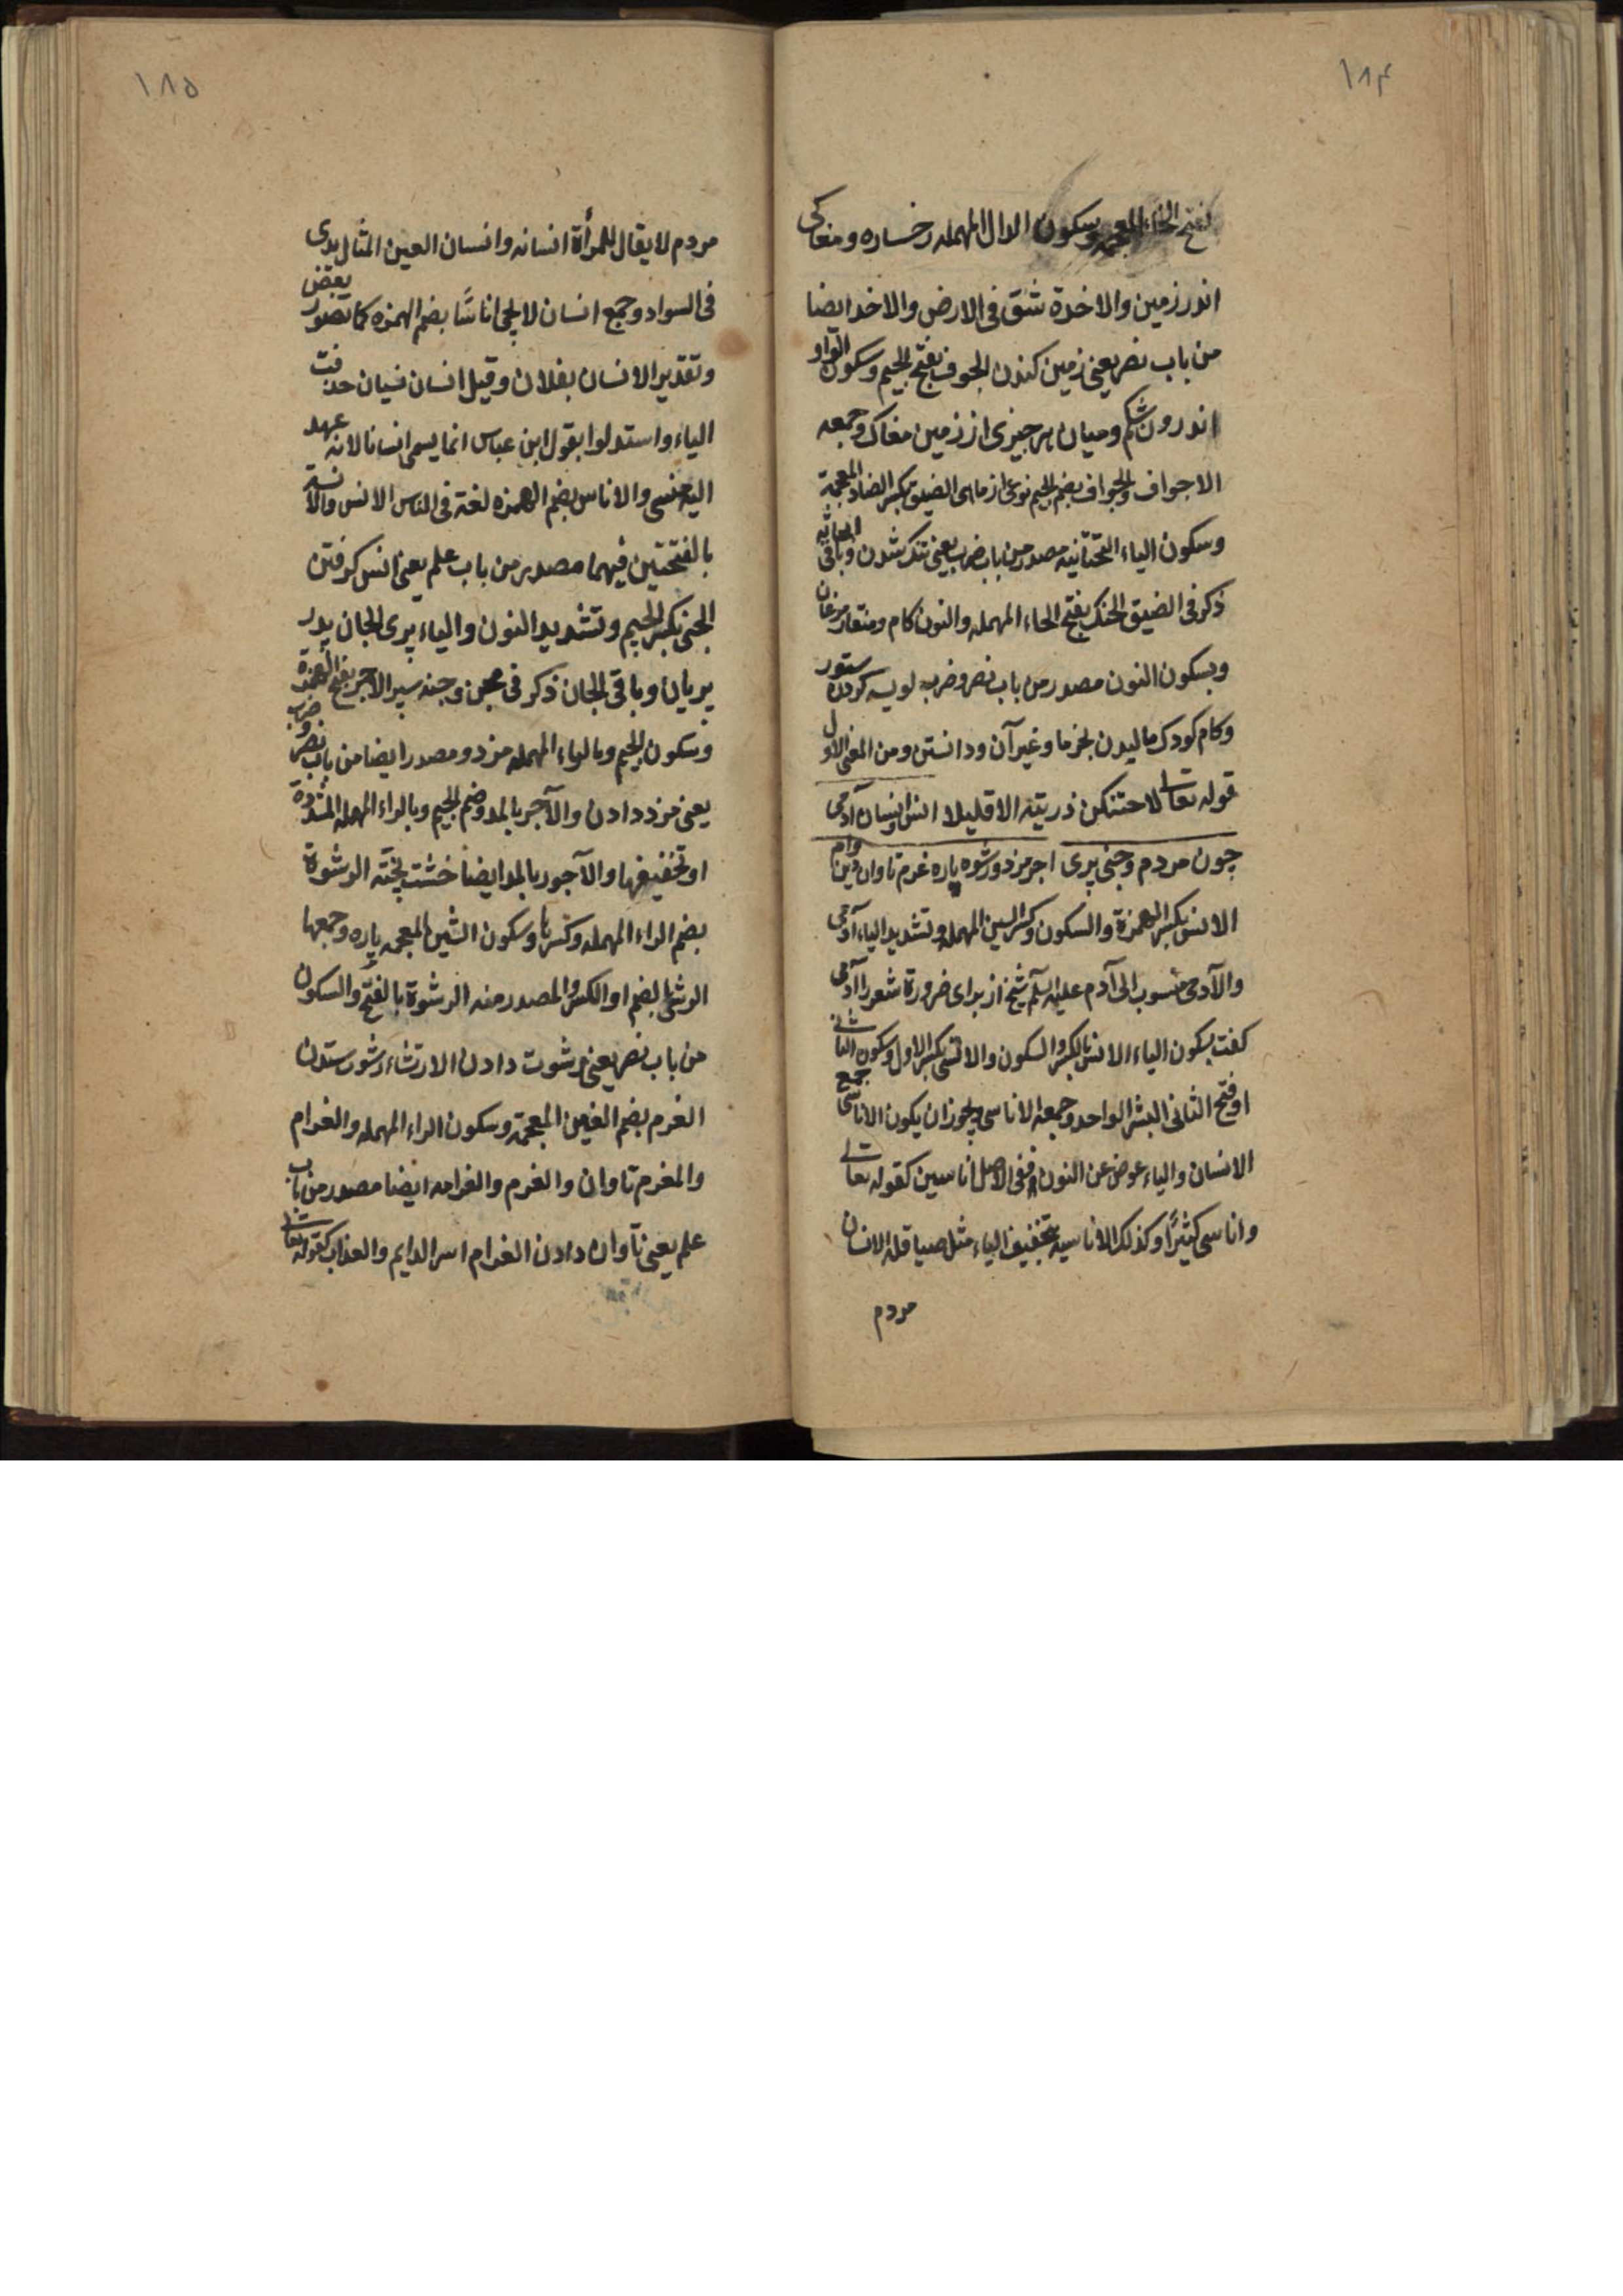 ۱۸۴
بفتح الخاء المعجمه وسکون الدال المهمله رخساره ومغاکی
اندر زمین والاخدة شق فی الارض والاخد ایضا
من باب نصر یعنی زمین کندن الجوف بفتح الجیم وسکون الواو
اندرون شکم ومیان هر چیزی از زمین مغاک وجمعه
الاجواف والجواف بضم الجیم نوعی از ماهی الضیق بکسر الضاد المعجمة
وسکون الیاء التحتانیه مصدر من باب ضرب یعنی تنک شدن وباقی
ذکر فی الضیق الحنک بفتح الحاء المهمله والنون کام ومنقار مرغان
وبسکون النون مصدر من باب نصر وضرب لویسه کردن ستور
وکام کودک مالیدن بخرما وغیر آن ودانستن ومن المعنی الاول
قوله تعالی لاحتنکن ذریته الا قلیلا انس وانسان آدمی
چون مردم وجنی پری اجر مزد ورشوه پاره غرم تاوان دین وام
الانس بکسر الهمزة والسکون وکسر السین المهمله وتشدید الیاء آدمی
والآدمی منسوب الی آدم علیه السلم شیخ از برای ضرورة شعر را آدمی
کفت بسکون الیاء الانس بالکسر والسکون والانسی بکسر الاول وسکون الثانی
او فتح الثانی البشر الواحد وجمعه الاناسی ویجوز ان یکون الاناسی جمع
الانسان والیاء عوض عن النون ففی الاصل اناسین کقوله تعالی
واناسی کثیرًا وکذلک الاناسیه بتخفیف الیاء مثل صیاقله الانسان
مردم
۱۸۵
مردم لا یقال للمرأة انسانه وانسان العین المثال یری
فی السواد وجمع انسان لا یجی اناسًا بضم الهمزه کما تصور بعض
وتقدیر الانسان بفلان وقیل انسان نسیان حذفت
الیاء واستدلوا بقول ابن عباس انما یسمی انسانا لانه عهد
الیه فنسی والاناس بضم الهمزه لغة فی الناس الانس والانسة
بالفتحتین فیهما مصدر من باب علم یعنی انس کرفتن
الجنی بکسر الجیم وتشدید النون والیاء پری الجان پدر
پریان وباقی الجان ذکر فی مجن وجنه سپر الاجر بفتح الهمزة
وسکون الجیم وبالراء المهمله مزد ومصدر ایضا من باب نصر وضرب
یعنی مزد دادن والآجر بالمد وضم الجیم وبالراء المهمله المشددة
او تخفیفها والآجور بالمد ایضا خشت پخته الرشوة
بضم الراء المهمله وکسرها وسکون الشین المعجمه پاره وجمعها
الرشی بالضم او الکسر والمصدر منه الرشوة بالفتح والسکون
من باب نصر یعنی رشوت دادن الارتشاء رشوت ستدن
الغرم بضم الغین المعجمة وسکون الراء المهمله والغرام
والمغرم تاوان والغرم والغرامه ایضا مصدر من باب
علم یعنی تاوان دادن الغرام اسر الدایم والعذاب کقوله تعالی